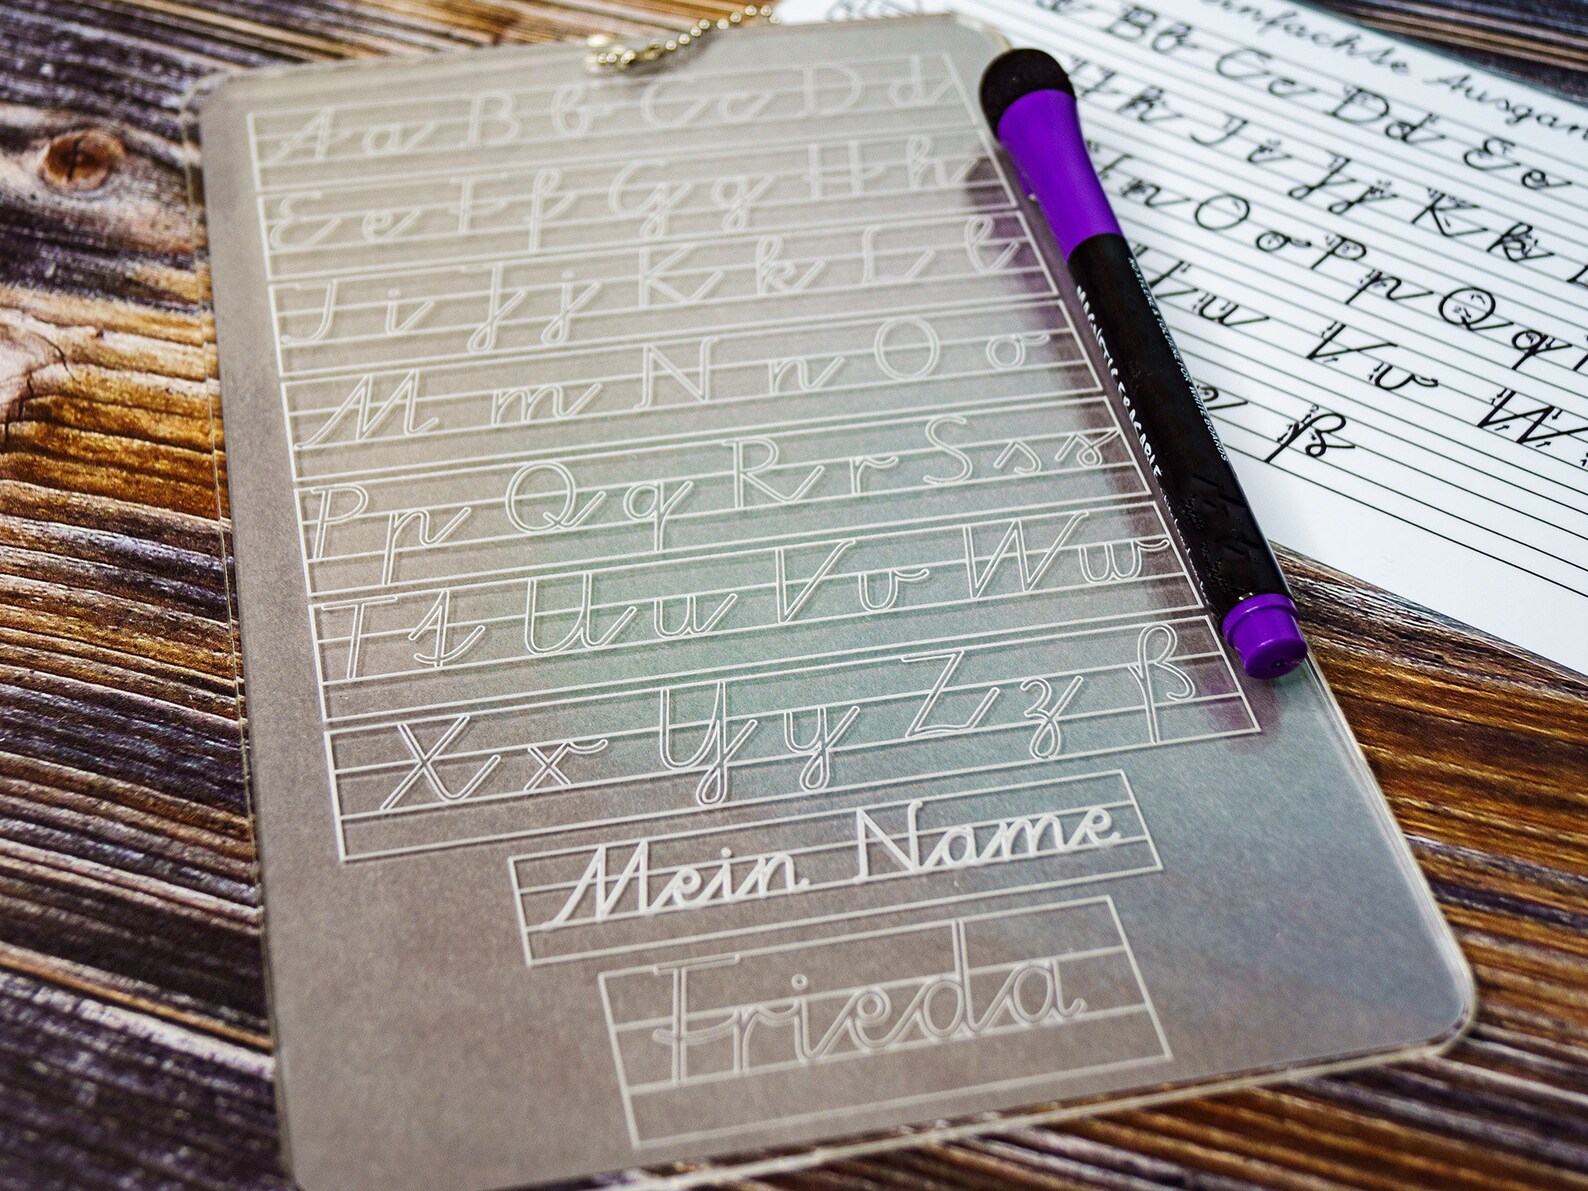 Aa Bb Cc Dd
Ee Ff Gg Hh
Ii Jj Kk Ll
Mm Nn Oo
Pp Qq Rr Ss s
Tt Uu Vv Ww
Xx Yy Zz ß
Mein Name
Frieda
FOR WHITE BOARDS
infachste Ausgan
Bb Cc Dd Ee
h Ii Jj Kk
n Oo Pp Qq
u Vv W
ß